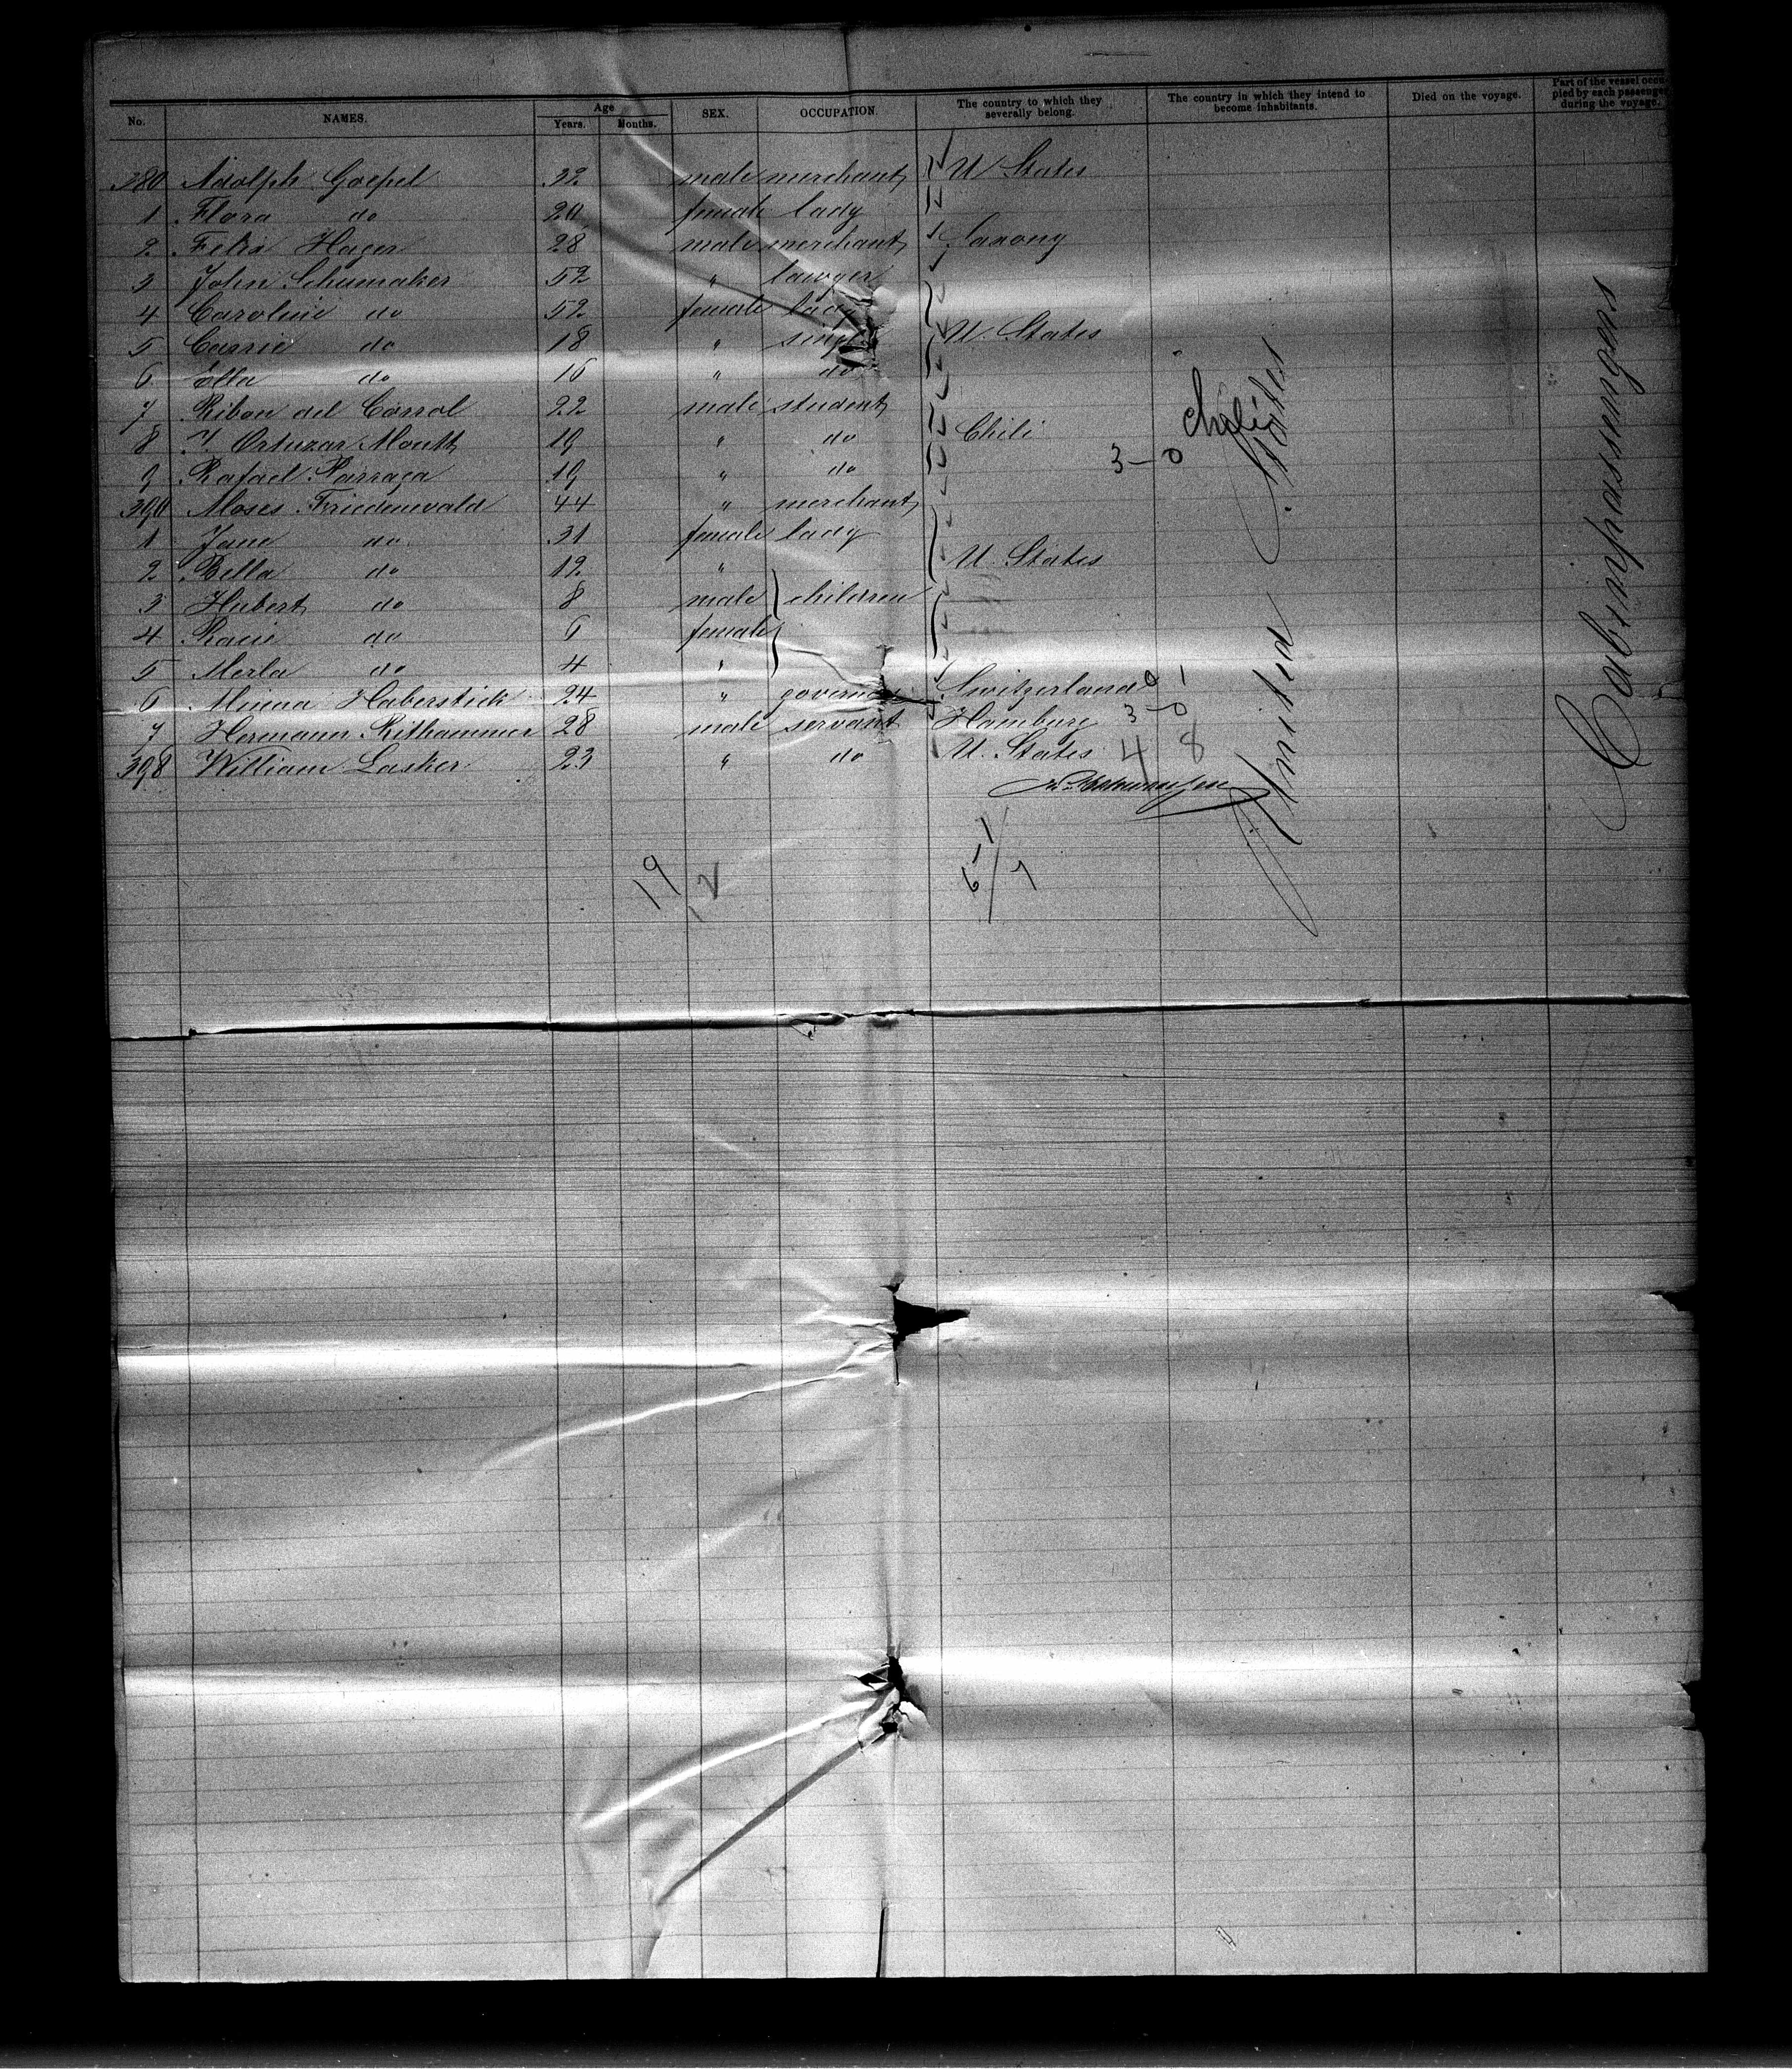 No. NAMES. Age Years. Months. SEX. OCCUPATION. The country to which they severally belong. The country in which they intend to become inhabitants. Died on the voyage. Part of the vessel occupied by each passenger during the voyage.
380 Adolph Goepel 32 male merchant U States
1 Flora do 20 female lady
2 Felix Hager 28 male merchant Saxony
3 John Schumaker 52 " lawyer
4 Caroline do 52 female lady
5 Carrie do 18 " single U. States
6 Ella do 16 " do
7 Ribon del Corrol 22 male student
8 Ortuzar Montt 19 " do Chili
9 Rafael Parraga 19 " do
390 Moses Friedenwald 44 " merchant
1 Jane do 31 female lady
2 Bella do 12 " U. States
3 Hubert do 8 male children
4 Racie do 6 female
5 Merla do 4 "
6 Minna Haberstick 24 " Switzerland 0 1
7 Hermann Rithammer 28 male servant Hamburg 3-0
398 William Lasker 23 " do U. States 4 8
Chili
3-0
United States
Cabinpassengers
19
12